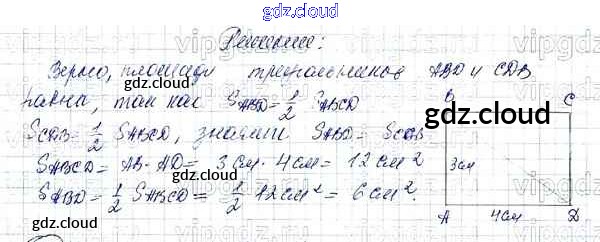 gdz.cloud
Решение:
Верно, площади треугольников ABD и CDB
равны, так как S_ABD = 1/2 S_ABCD
S_CDB = 1/2 S_ABCD, значит S_ABD = S_CDB
S_ABCD = AB · AD = 3 см · 4 см = 12 см²
S_ABD = 1/2 S_ABCD = 1/2 12 см² = 6 см².
B C
3см
A 4см D
gdz.cloud
gdz.cloud
gdz.cloud
gdz.cloud